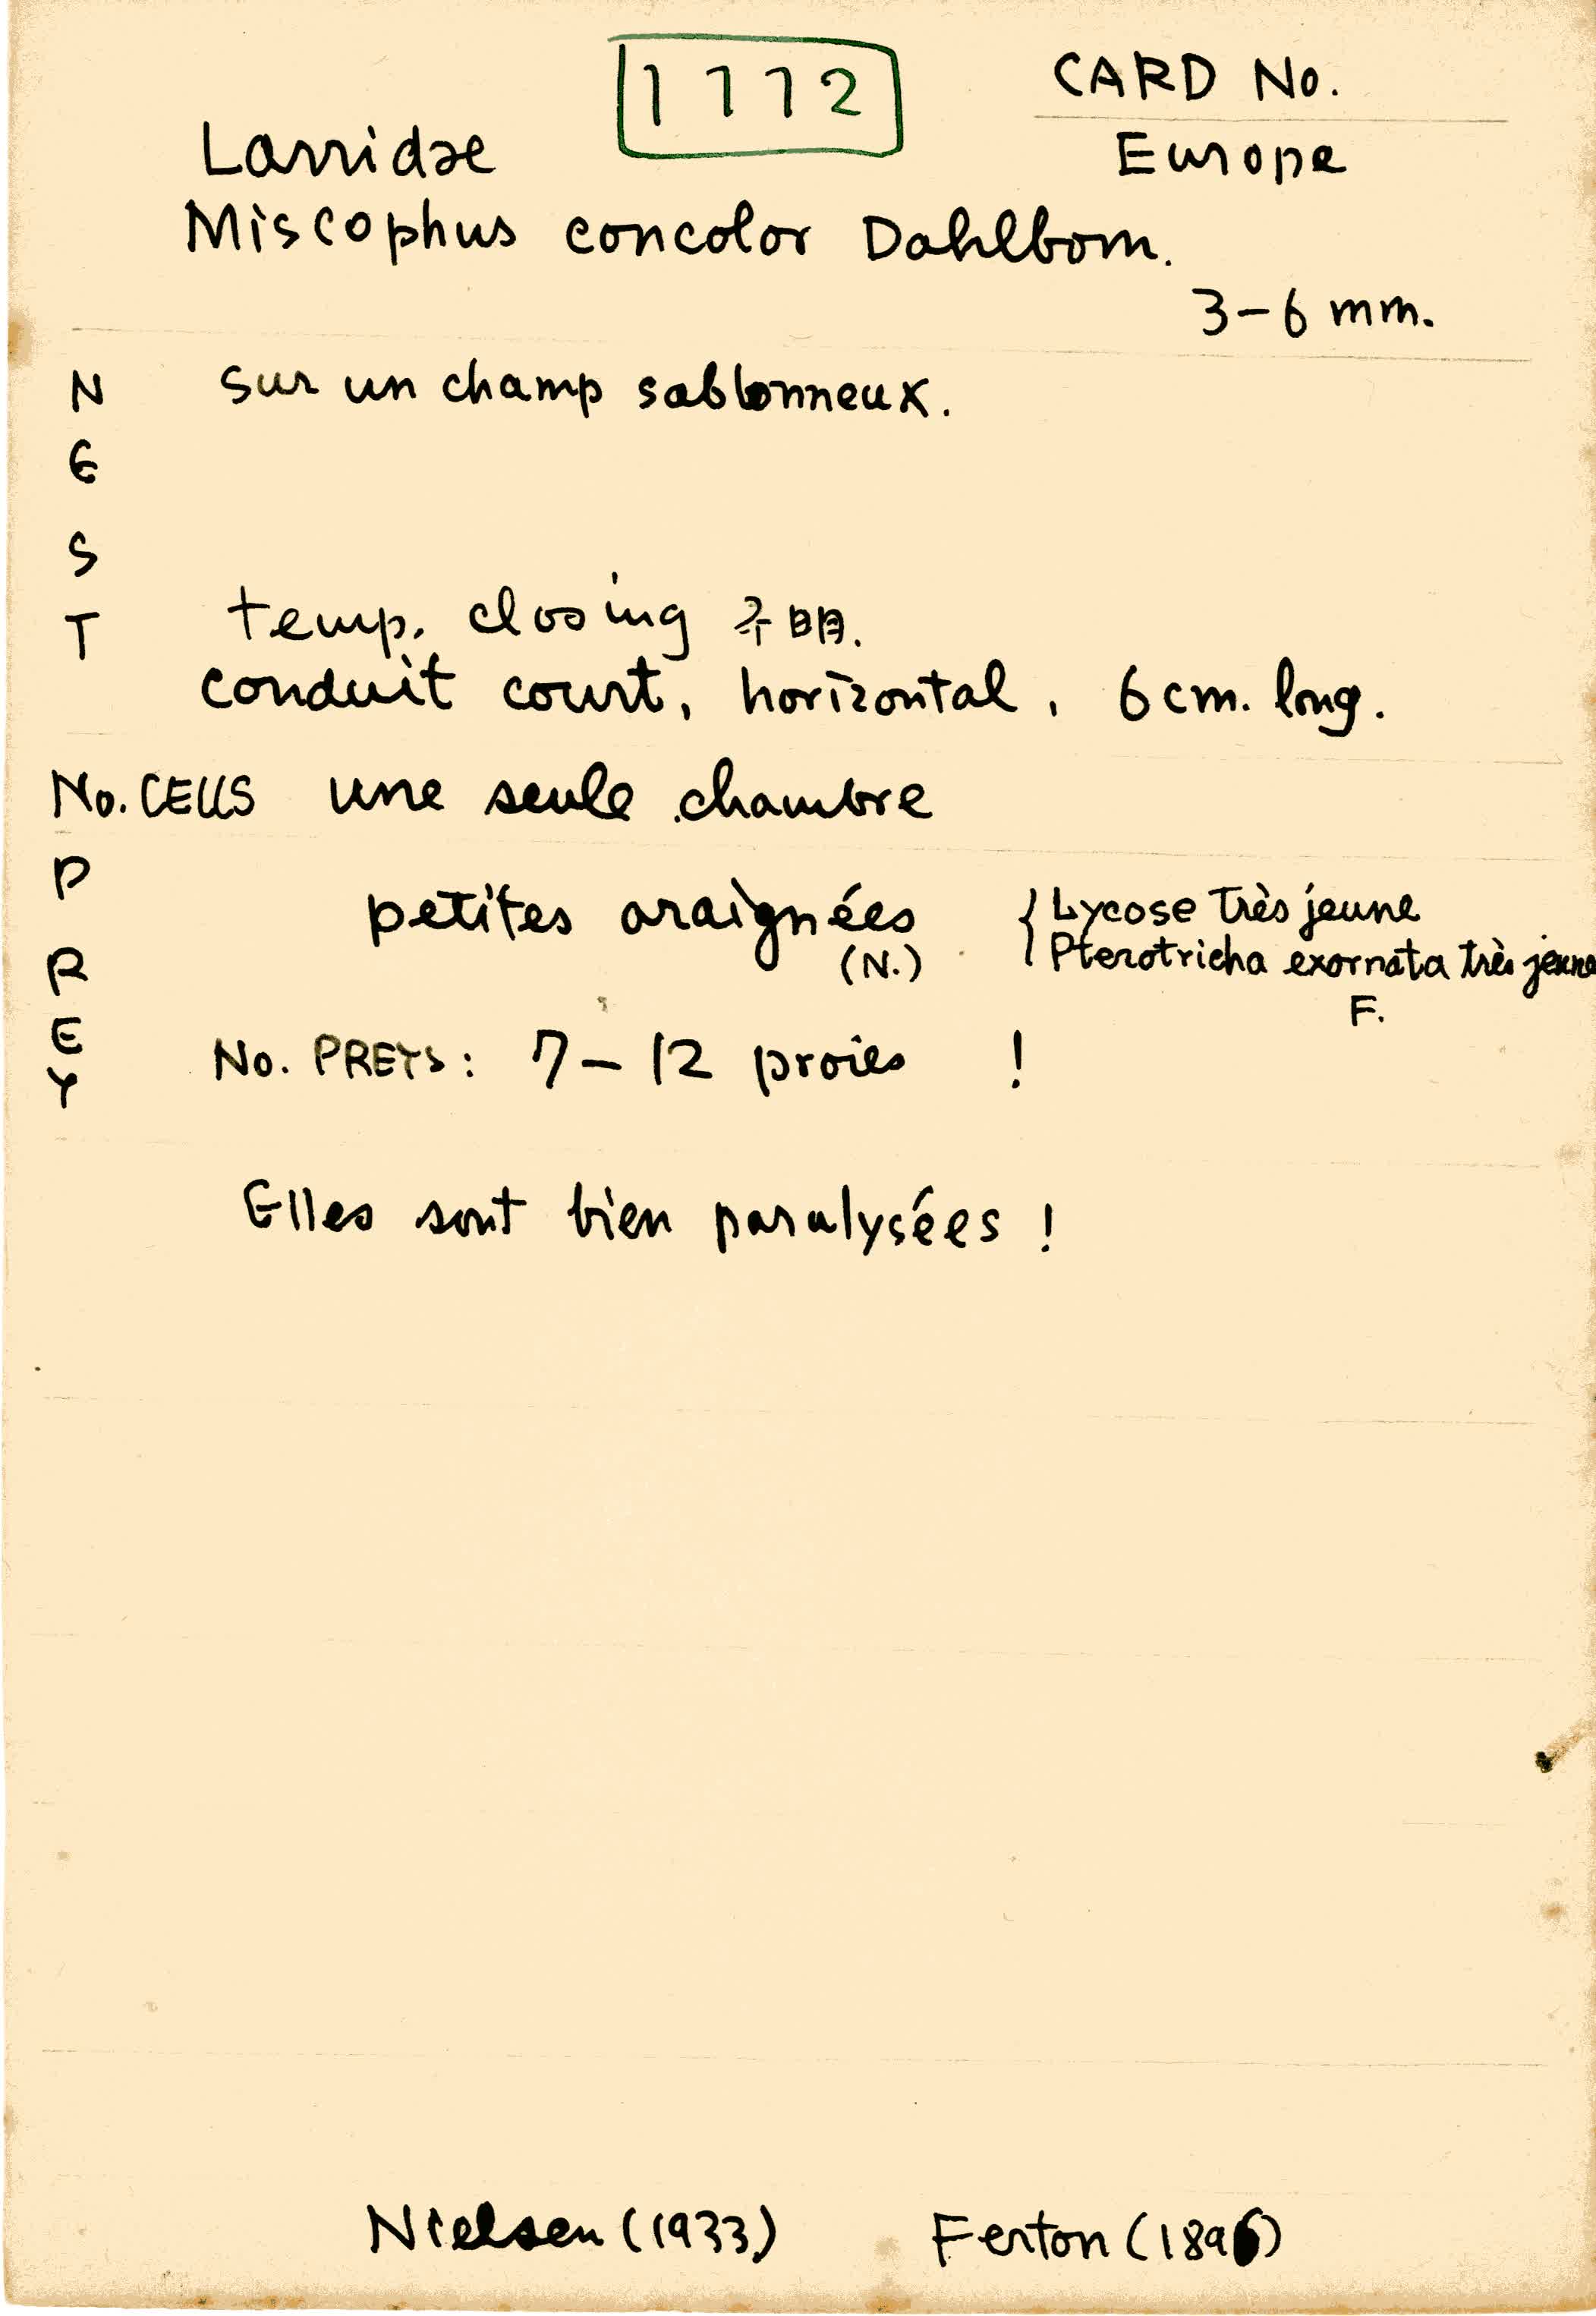 1772
CARD No.
Larridae
Europe
Miscophus concolor Dahlbom.
3-6 mm.
NEST
sur un champ sablonneux.
temp. closing 不明.
conduit court, horizontal, 6 cm. long.
No. CELLS une seule chambre
PREY
petites araignées
(N.)
{ Lycose très jeune
Pterotricha exornata très jeune
F.
No. PREYS: 7-12 proies !
Elles sont bien paralysées !
Nielsen (1933) Ferton (1896)